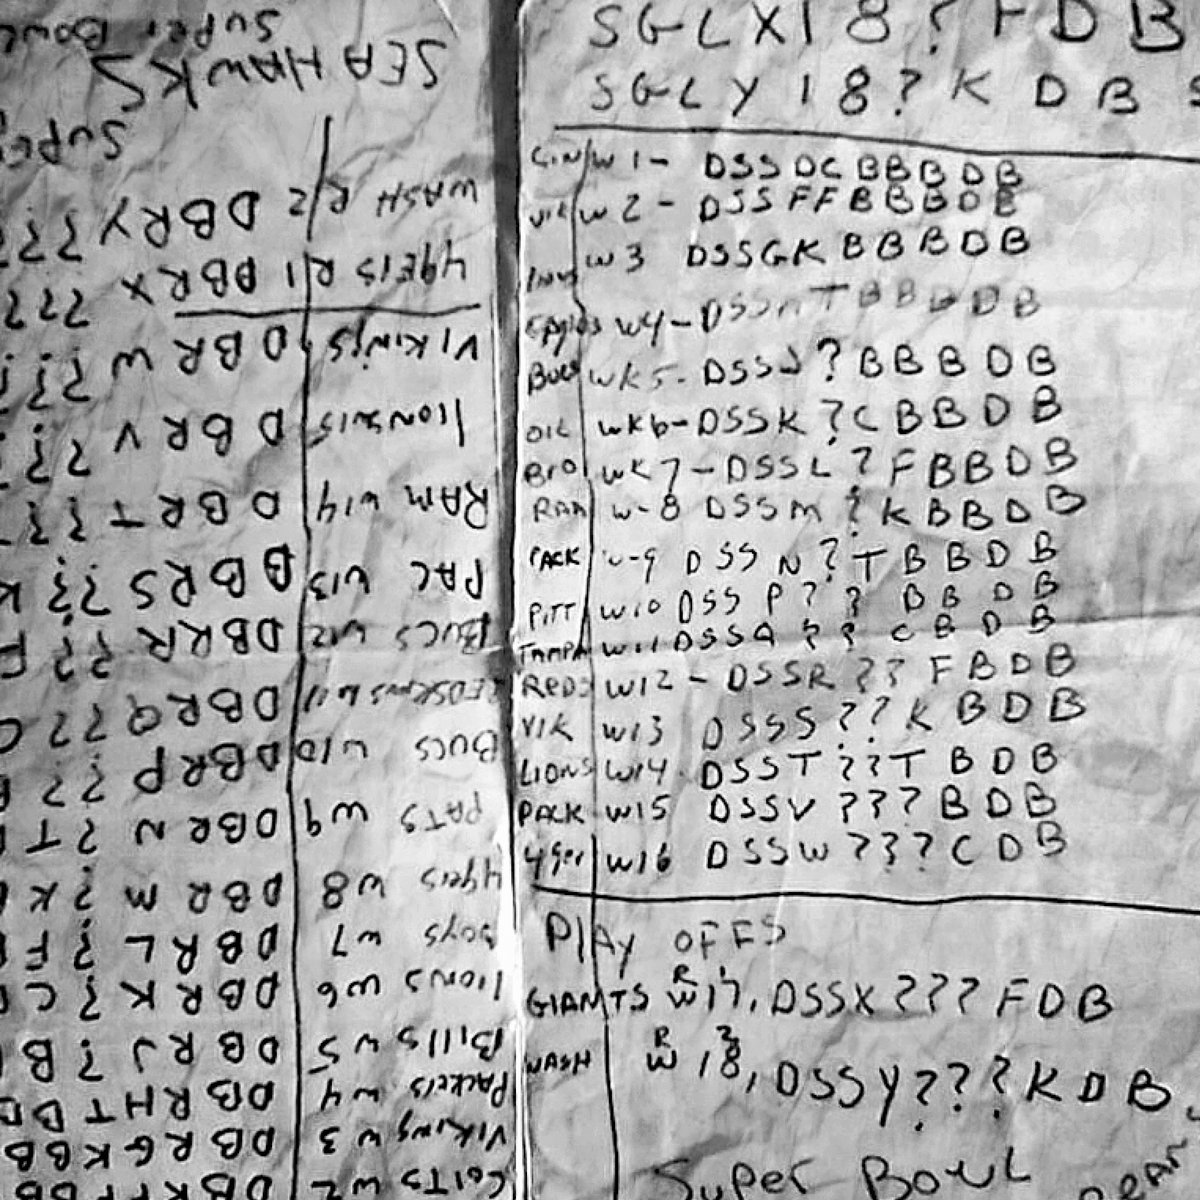 SGLX18?FDB
SGLY18?KDB
Cin W1- DSSDCBBBDB
W2- DSSFFBBBDB
W3 DSSGKBBBDB
Eagles W4-DSSHTBBBDB
Bucs WK5-DSSJ?BBBDB
OIL WK6-DSSK?CBBDB
BRO WK7-DSSL?FBBDB
RAM W-8 DSSM?KBBDB
PACK W-9 DSSN?TBBDB
PITT W10 DSSP??BBDB
TAMPA W11 DSSQ??CBDB
REDS W12-DSSR??FBDB
VIK W13 DSSS??KBDB
LIONS W14-DSST??TBDB
PACK W15 DSSV???BDB
49er W16 DSSW???CDB
PlAy OFFS
GIANTS R W17, DSSX???FDB
WASH R 2 W18, DSSY???KDB
Super Bowl
COLTS W2
VIKING W3 DBRGKBB
PACKERS W4 DBRHTBB
Bills W5 DBRJ?B
lions W6 DBRK?C
boys W7 DBRL?F
49ers W8 DBRM?K
PATS W9 DBRN?T
BUCS W10 DBRP??
REDSKINS W11 DBRQ??C
BUCS W12 DBRR??F
PAC W13 DBRS??K
RAM W14 DBRT??T
lions W15 DBRV???
VIKINGS DBRW???
49ERS R1 DBRX ???
WASH R2 DBRY???
Super
SEAHAWKS
Super Bowl